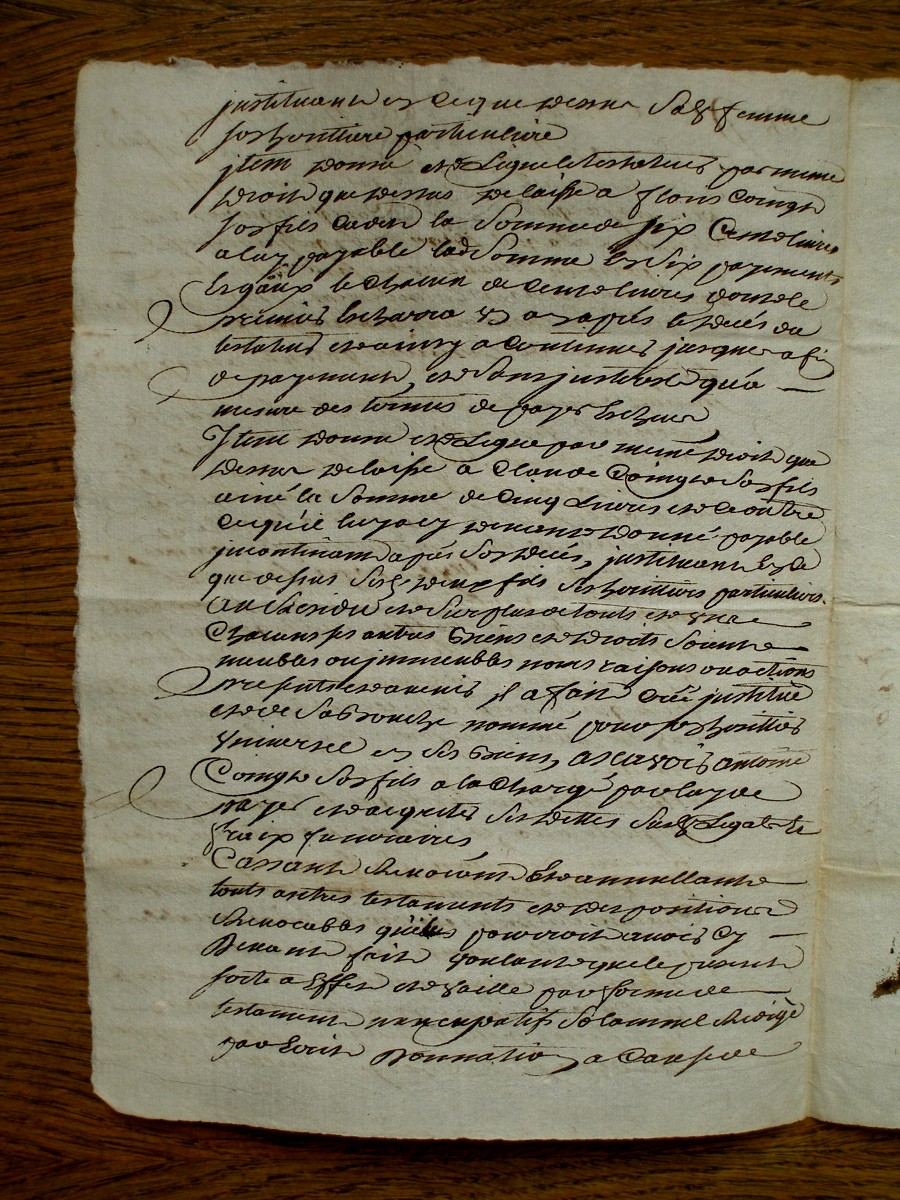 justituant en ce que dessus sad. femme
son heritiere particuliere
jtem donne et legue le testateur par meme
droit que dessus delaisse a floris Coingt
son fils cadet la somme de six cent livres
a luy payable lad. somme en six payements
Esgaux le chacun de cent livres dont le
premier Escherra un an apres le deces du
testateur et ainsy a continuer jusques a fin
de payement, et sans jnterest qu'a
mesure des termes de payer Escheus
Jtem donne et legue par meme droit que
dessus delaisse a Claude Coingt son fils
ainé la somme de cinq livres et ce outre
ce qu'il luy a cy devant donné payable
jncontinant apres son deces, jnstituant en ce
que dessus sesd. deux fils ses heritiers particuliers.
Au Residu et surplus de touts et uns
chacuns ses autres biens et droits soient
meubles ou jmmeubles noms raisons ou actions
presents et advenir jl a fait créé jnstitué
et de sa bouche nommé pour son heritier
universel en ses biens, ascavoir antoine
Coingt son fils a la charge par luy de
payer et acquiter ses dettes susd. legats et
fraix funeraires
Cassant Revocant et annullant
touts autres testaments et dispositions
Revocables qu'il pourroit avoir cy
devant fait voulant que le present
sorte a Effet et vaille par forme de
testament nuncupatif solemnel Redigé
par Escrit donnation a cause de